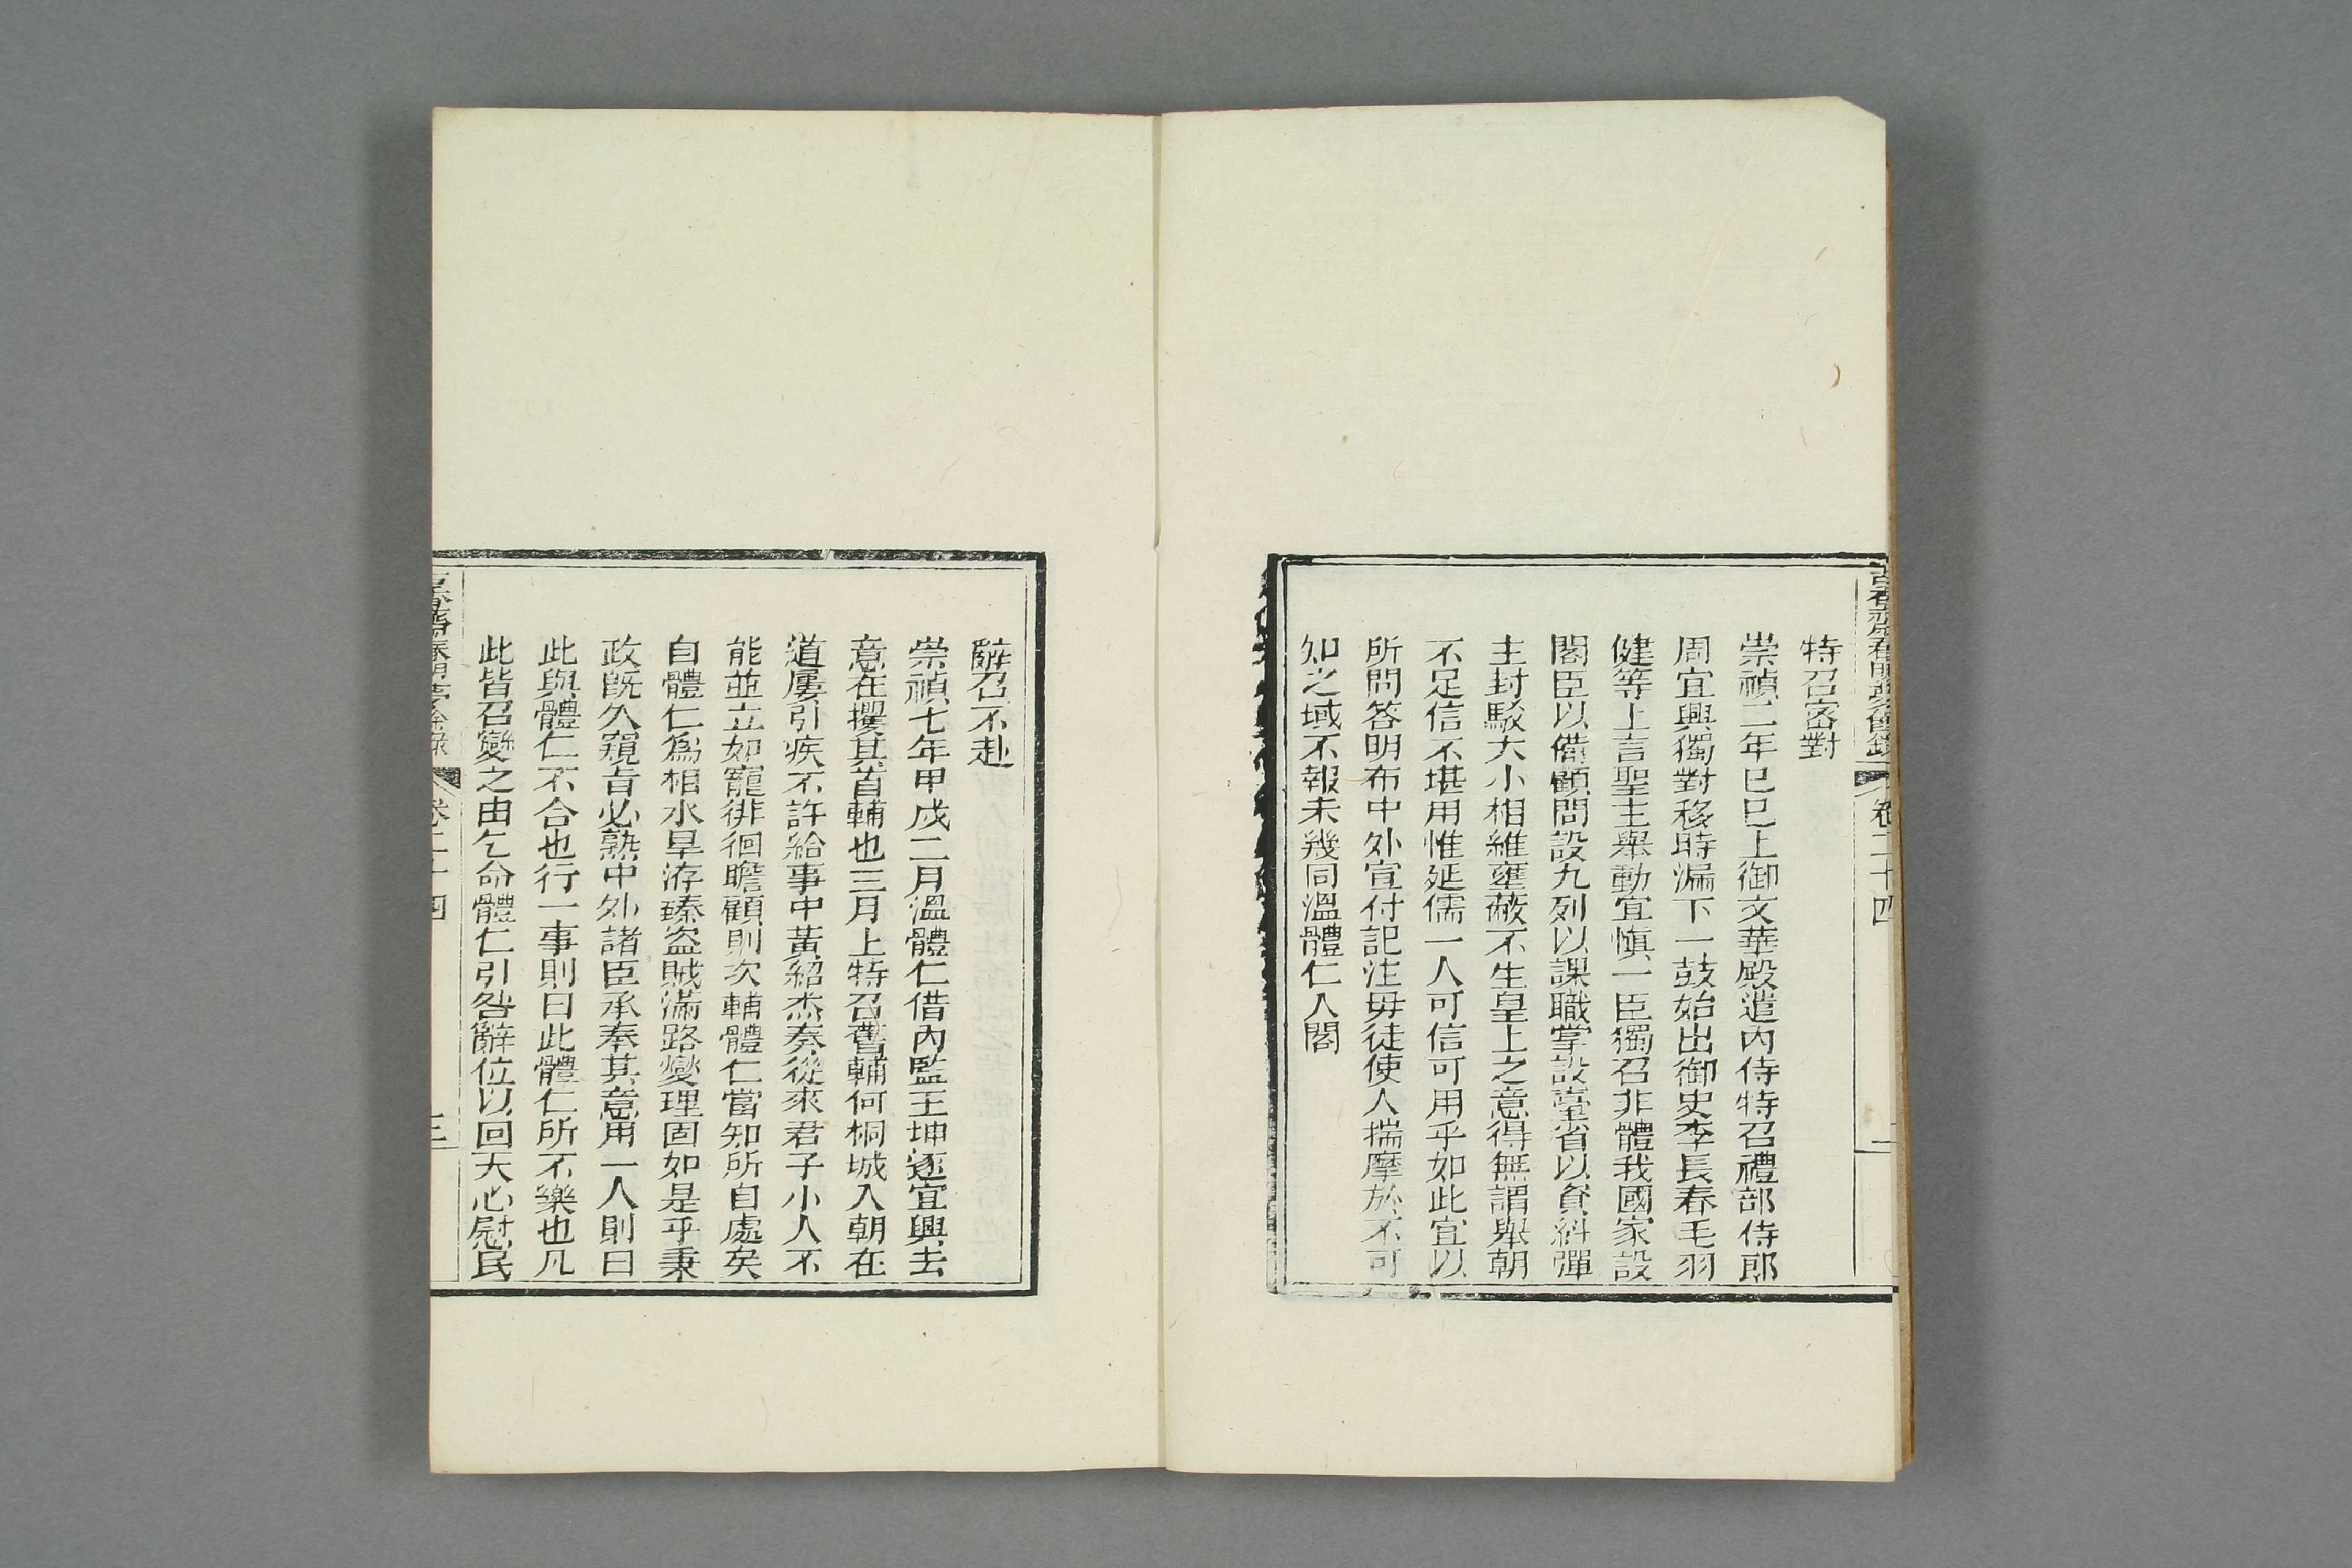 卷二十四
特召密對
崇禎二年巳巳上御文華殿遣內侍特召禮部侍郎
周宜興獨對移時漏下一鼓始出御史李長春毛羽
健等上言聖主舉動宜愼一臣獨召非體我國家設
閣臣以備顧問設九列以課職掌設臺省以資糾彈
主封駁大小相維壅蔽不生皇上之意得無謂舉朝
不足信不堪用惟延儒一人可信可用乎如此宜以
所問答明布中外宣付記注毋徒使人揣摩於不可
知之域不報未幾同溫體仁入閣
辭召不赴
崇禎七年甲戌二月溫體仁借內監王坤逐宜興去
意在攫其首輔也三月上特召舊輔何桐城入朝在
道屢引疾不許給事中黃紹杰奏從來君子小人不
能並立如寵徘徊瞻顧則次輔體仁當知所自處矣
自體仁爲相水旱洊臻盜賊滿路燮理固如是乎秉
政旣久窺旨必熟中外諸臣承奉其意用一人則曰
此與體仁不合也行一事則曰此體仁所不樂也凡
此皆召變之由乞命體仁引咎辭位以回天心慰民
卷二十四